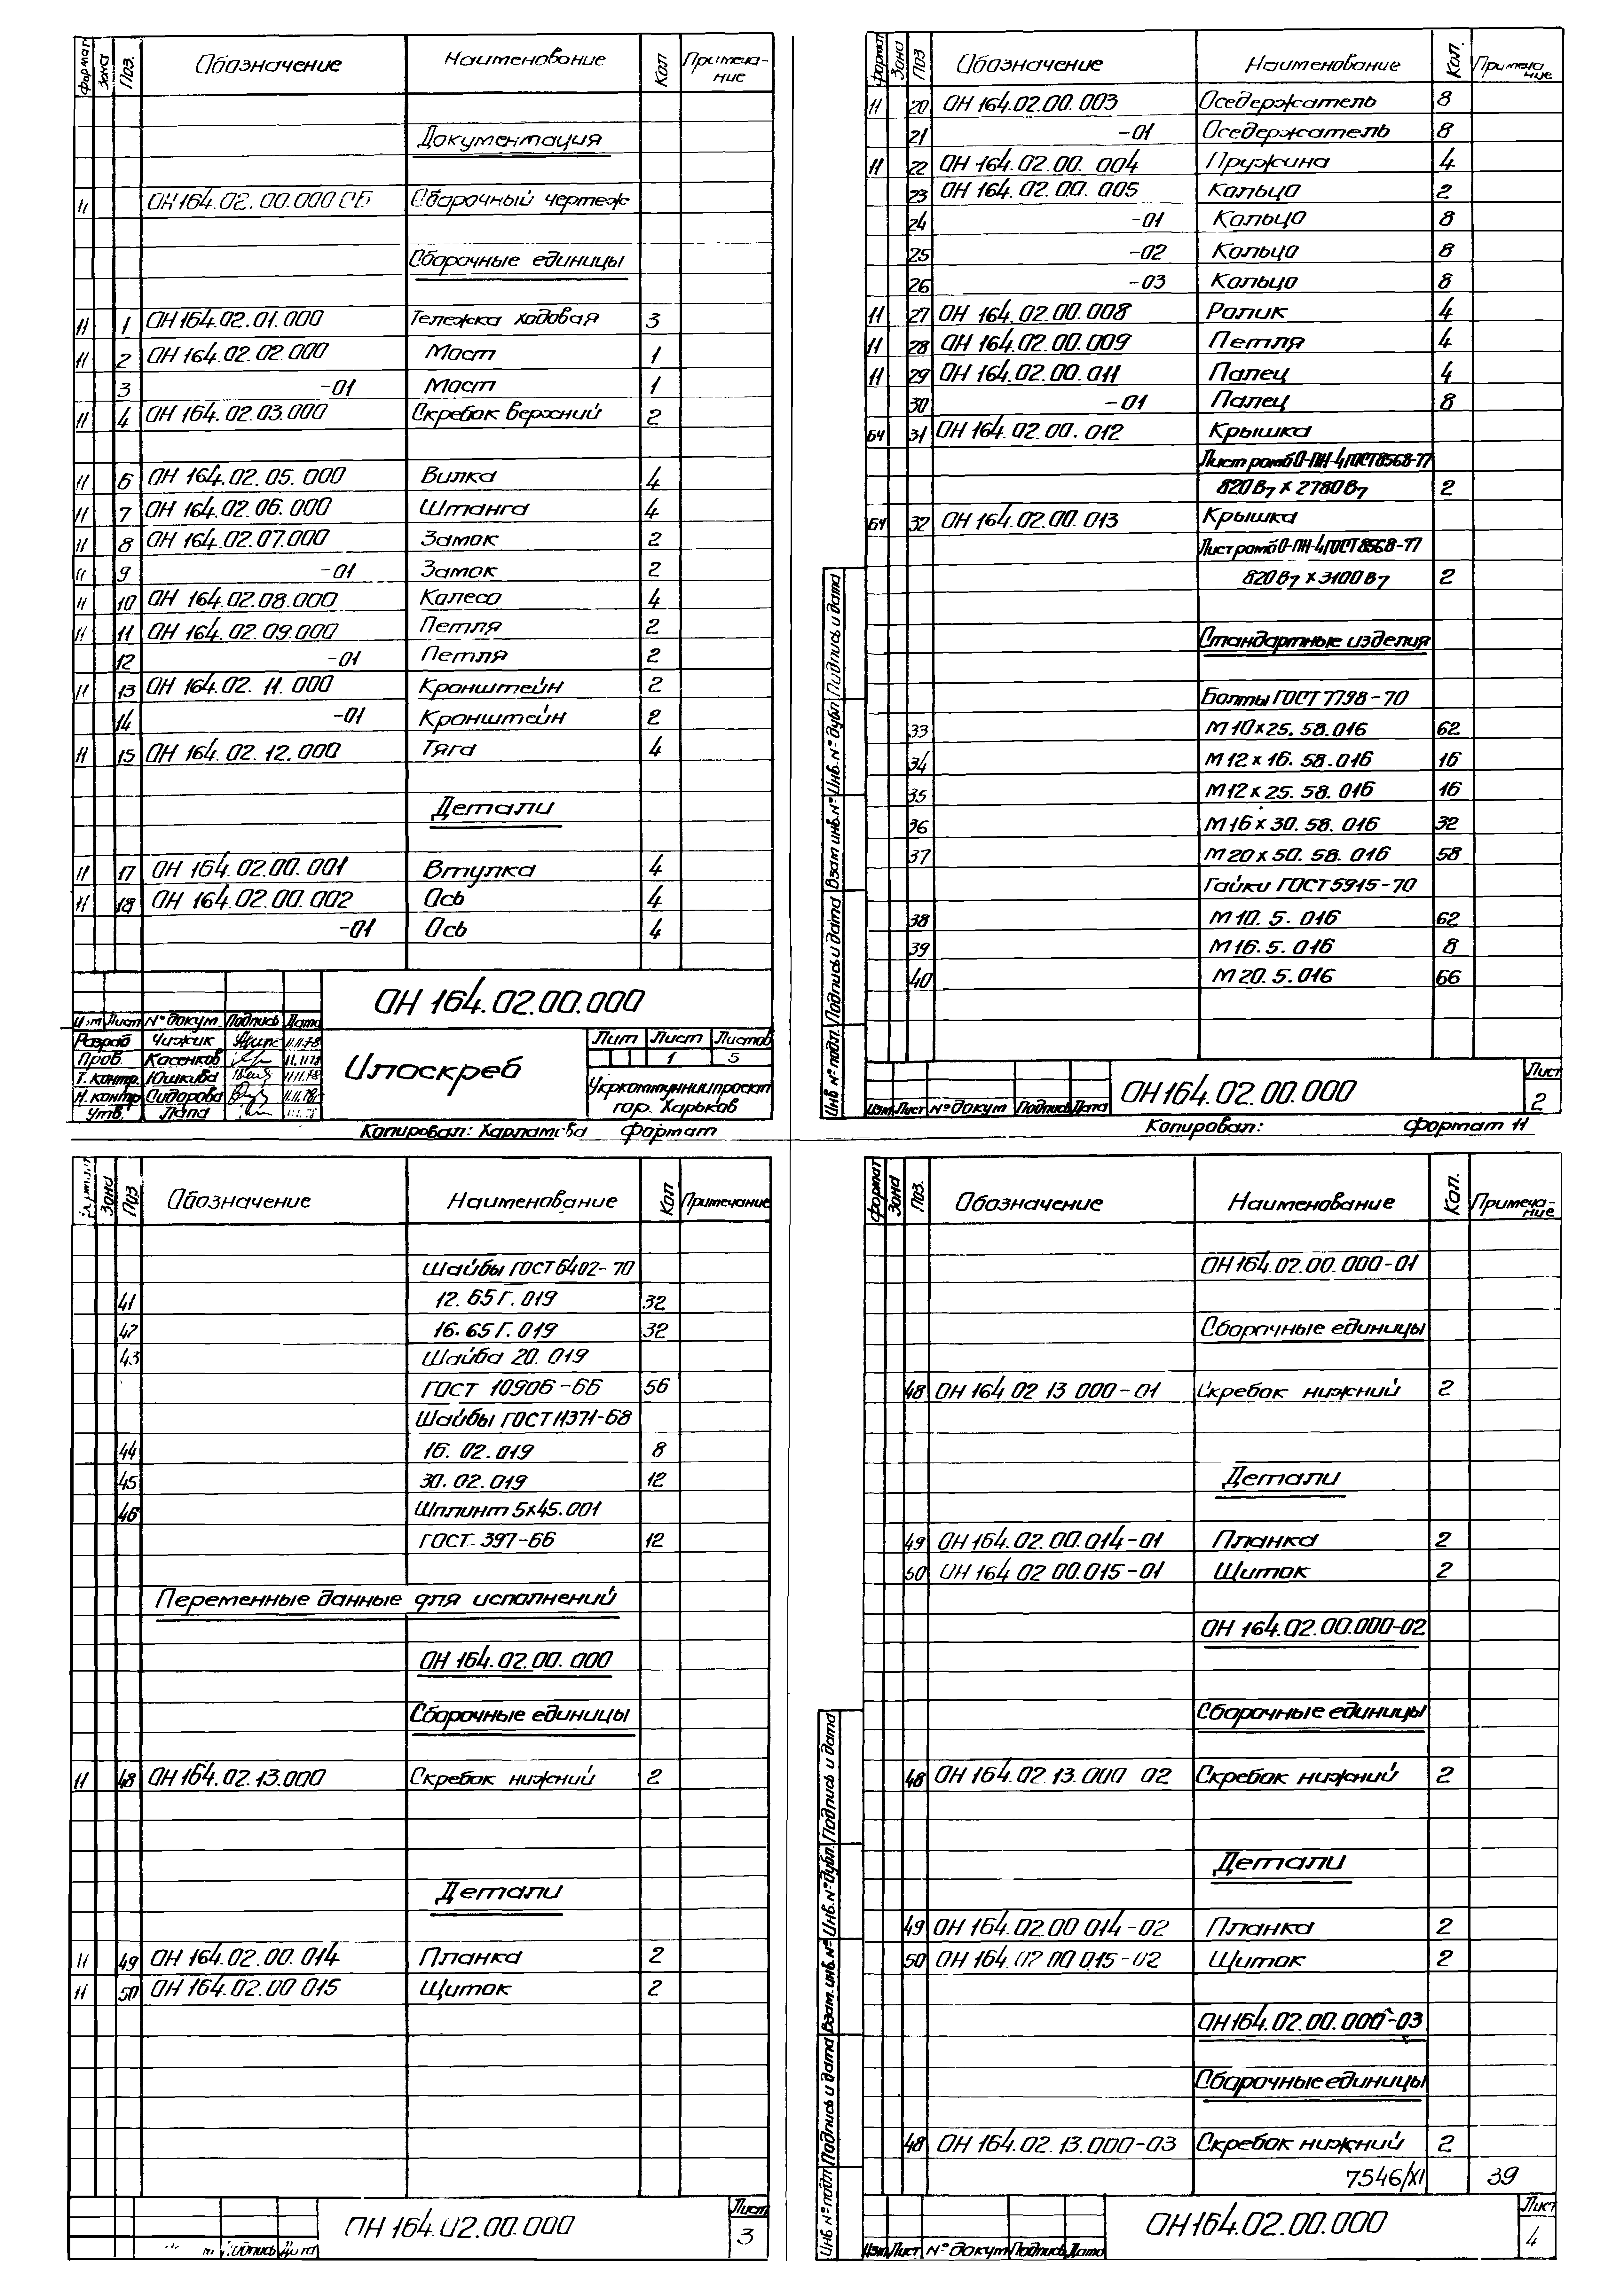 Формат Зона Поз. Обозначение Наименование Кол Примеча-
ние
Документация
11 ОН164.02.00.000 СБ Сборочный чертеж
Сборочные единицы
11 1 ОН164.02.01.000 Тележка ходовая 3
11 2 ОН 164.02.02.000 Мост 1
3 -01 Мост 1
11 4 ОН 164.02.03.000 Скребок верхний 2
11 6 ОН 164.02.05.000 Вилка 4
11 7 ОН 164.02.06.000 Штанга 4
11 8 ОН 164.02.07.000 Замок 2
11 9 -01 Замок 2
11 10 ОН 164.02.08.000 Колесо 4
11 11 ОН 164.02.09.000 Петля 2
12 -01 Петля 2
11 13 ОН 164.02.11.000 Кронштейн 2
14 -01 Кронштейн 2
11 15 ОН 164.02.12.000 Тяга 4
Детали
11 17 ОН 164.02.00.001 Втулка 4
11 18 ОН 164.02.00.002 Ось 4
-01 Ось 4
ОН 164.02.00.000
Изм Лист № докум. Подпись Дата
Разраб Чижик 11.11.78
Пров. Касенков 11.11.78
Т. контр. Юшкива 11.11.78
Н. контр Сидорова 11.11.78
Утв. Лапа
Илоскреб
Лит Лист Листов
1 5
Укркоммуннипроект
гор. Харьков
Копировал: Харламова Формат
Формат Зона Поз Обозначение Наименование Кол. Примеча
ние
11 20 ОН 164.02.00.003 Оседержатель 8
21 -01 Оседержатель 8
11 22 ОН 164.02.00.004 Пружина 4
23 ОН 164.02.00.005 Кольцо 2
24 -01 Кольцо 8
25 -02 Кольцо 8
26 -03 Кольцо 8
11 27 ОН 164.02.00.008 Ролик 4
11 28 ОН 164.02.00.009 Петля 4
11 29 ОН 164.02.00.011 Палец 4
30 -01 Палец 8
БЧ 31 ОН 164.02.00.012 Крышка
Лист ромб О-ПН-4 ГОСТ 8568-77
820 В7 х 2780 В7 2
БЧ 32 ОН 164.02.00.013 Крышка
Лист ромб О-ПН-4 ГОСТ 8568-77
820 В7 х 3100 В7 2
Стандартные изделия
Болты ГОСТ 7798-70
33 М10х25.58.016 62
34 М12х16.58.016 16
35 М12х25.58.016 16
36 М16х30.58.016 32
37 М20х50.58.016 58
Гайки ГОСТ 5915-70
38 М10.5.016 62
39 М16.5.016 8
40 М20.5.016 66
Инв № подл. Подпись и дата Взам инв. № Инв. № дубл Подпись и дата
Изм Лист № докум Подпись Дата
ОН164.02.00.000
Лист
2
Копировал: Формат 11
Зона Поз Обозначение Наименование Кол Примечание
Шайбы ГОСТ 6402-70
41 12.65Г.019 32
42 16.65Г.019 32
43 Шайба 20.019
ГОСТ 10906-66 56
Шайбы ГОСТ 11371-68
44 16.02.019 8
45 30.02.019 12
46 Шплинт 5х45.001
ГОСТ 397-66 12
Переменные данные для исполнений
ОН 164.02.00.000
Сборочные единицы
11 48 ОН 164.02.13.000 Скребок нижний 2
Детали
11 49 ОН 164.02.00.014 Планка 2
11 50 ОН 164.02.00 015 Щиток 2
Подпись Дата
ОН 164.02.00.000
Лист
3
Формат Зона Поз. Обозначение Наименование Кол. Примеча-
ние
ОН 164.02.00.000-01
Сборочные единицы
48 ОН 164 02 13 000-01 Скребок нижний 2
Детали
49 ОН 164.02.00.014-01 Планка 2
50 ОН 164 02 00.015-01 Щиток 2
ОН 164.02.00.000-02
Сборочные единицы
48 ОН 164.02.13.000 02 Скребок нижний 2
Детали
49 ОН 164.02.00 014-02 Планка 2
50 ОН 164.02 00 015-02 Щиток 2
ОН164.02.00.000-03
Сборочные единицы
48 ОН 164.02.13.000-03 Скребок нижний 2
7546/XI 39
Инв № подл Подпись и дата Взам. инв. № Инв. № дубл. Подпись и дата
Изм Лист № докум Подпись Дата
ОН164.02.00.000
Лист
4